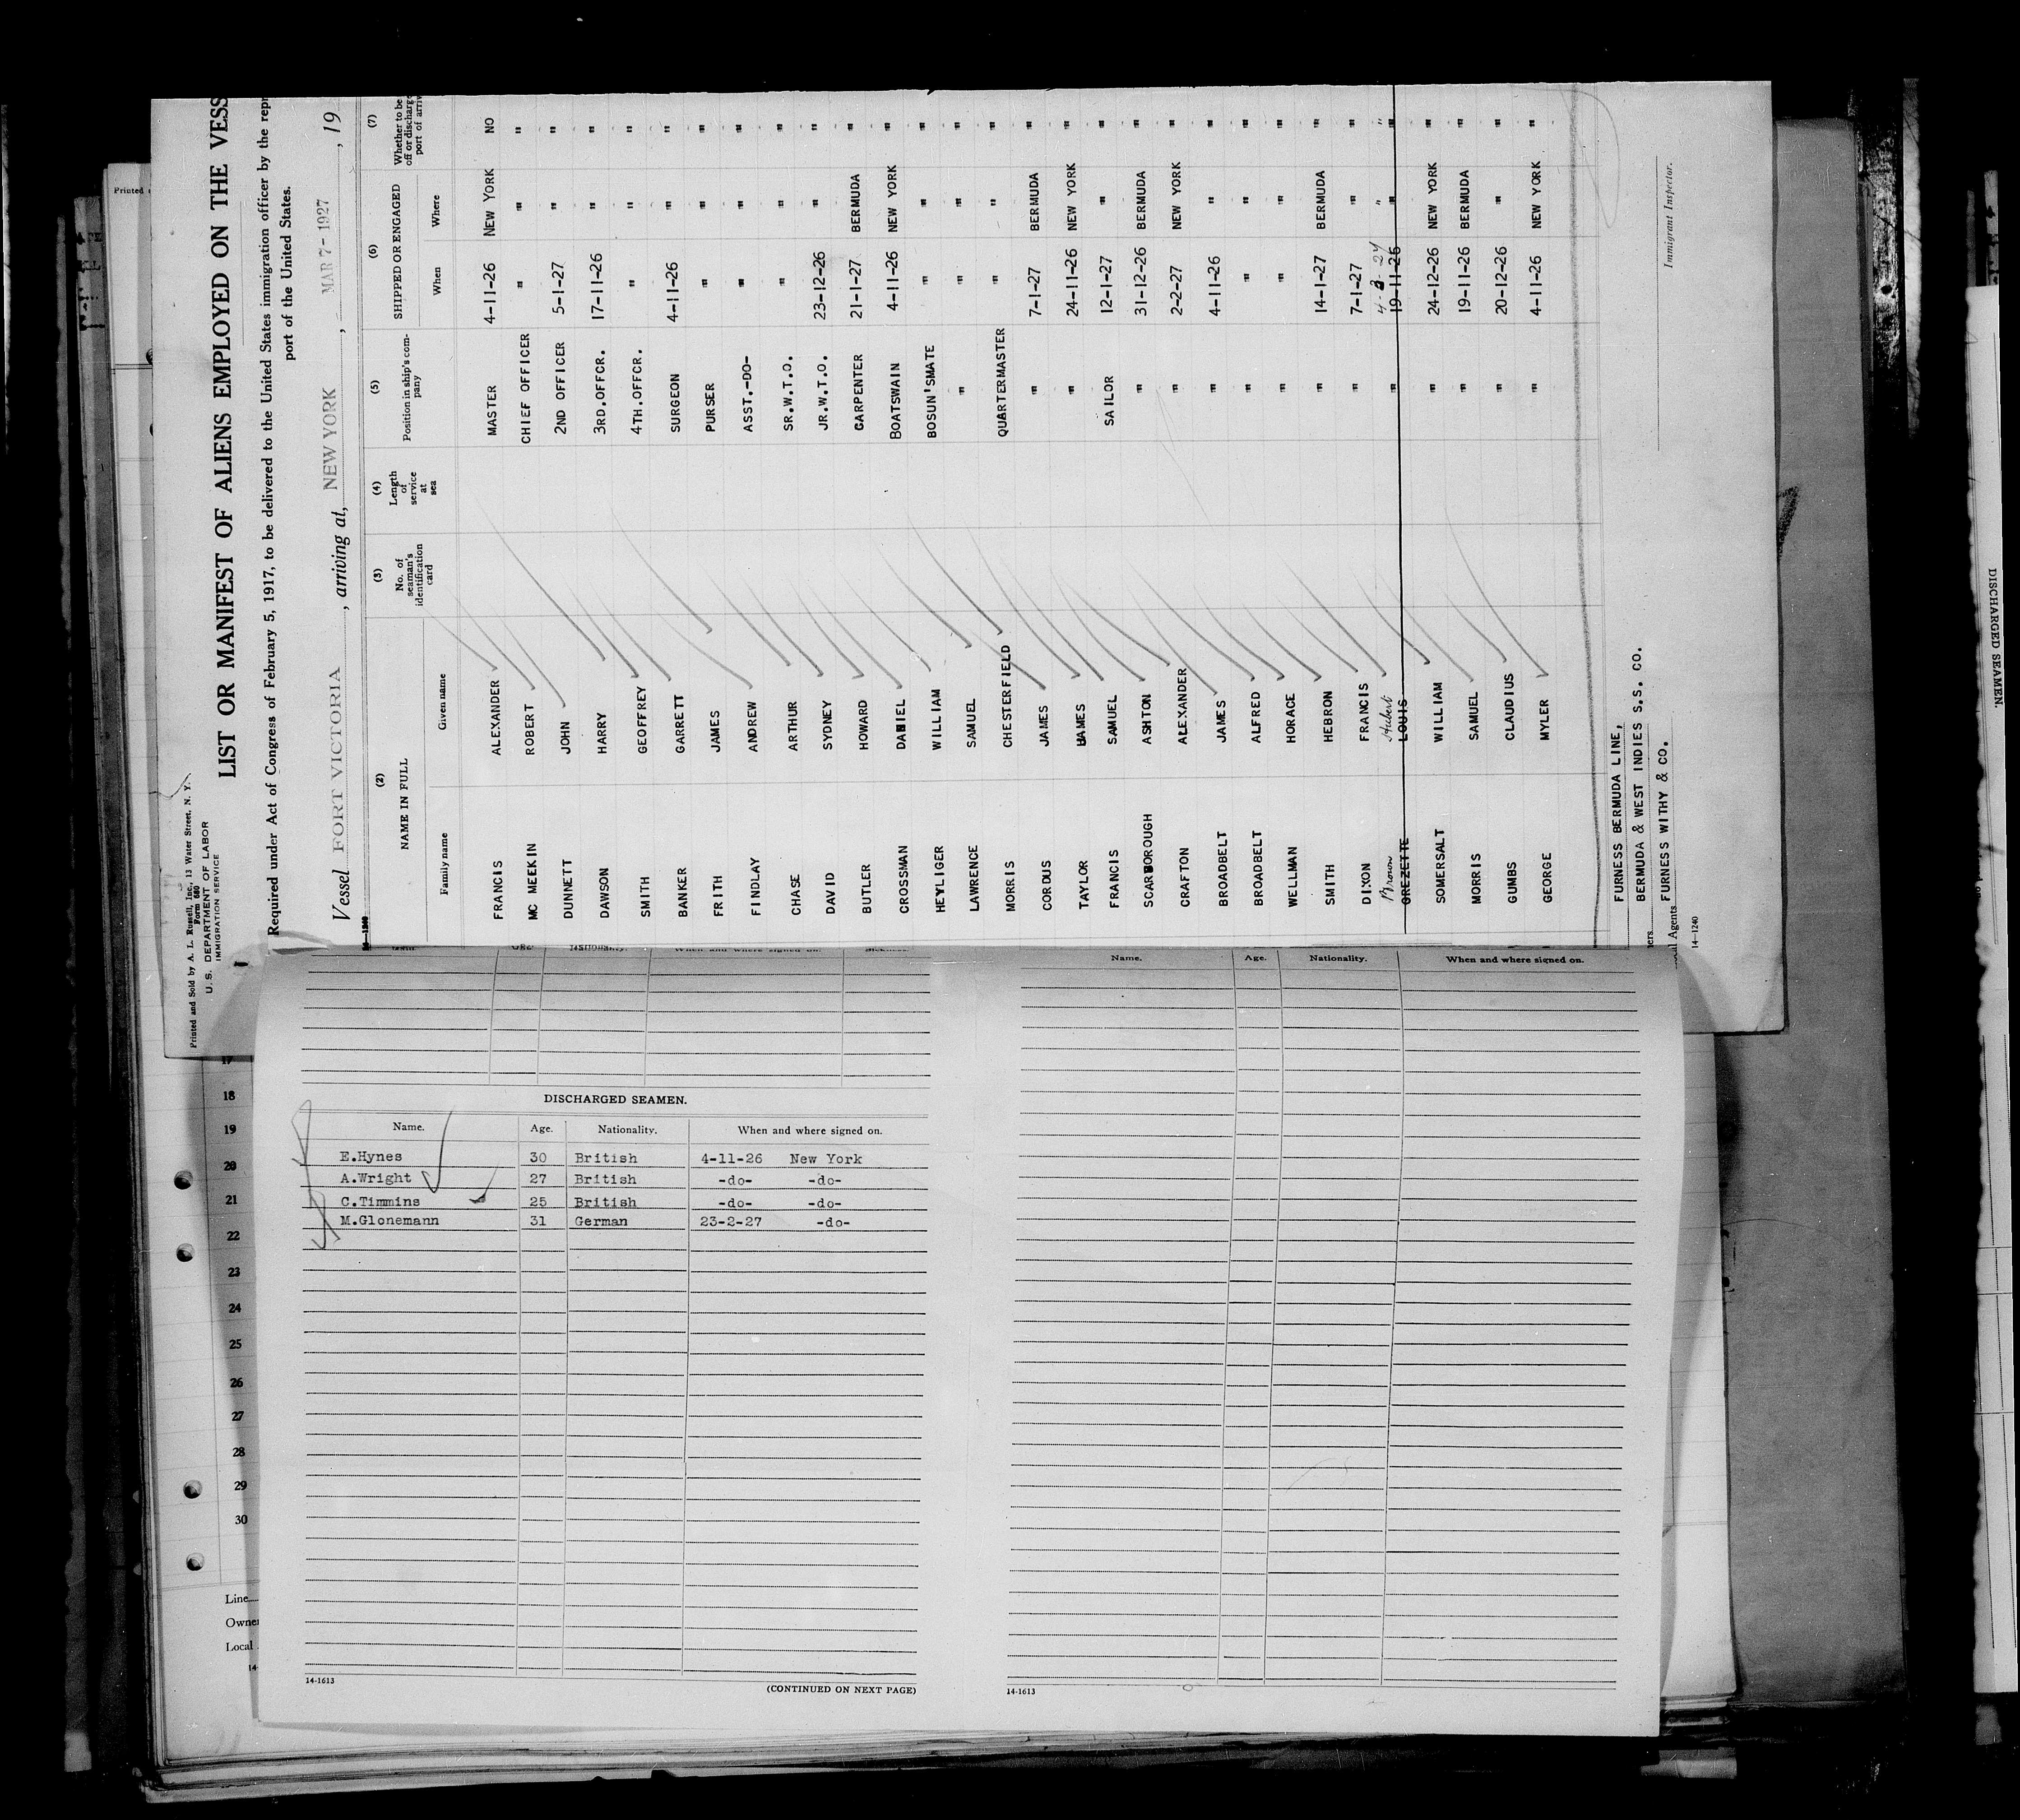 Printed and Sold by A. L. Russell, Inc., 13 Water Street, N. Y.
Form 680
U. S. DEPARTMENT OF LABOR
IMMIGRATION SERVICE
LIST OR MANIFEST OF ALIENS EMPLOYED ON THE VESS
Required under Act of Congress of February 5, 1917, to be delivered to the United States immigration officer by the repr
port of the United States.
Vessel FORT VICTORIA , arriving at, NEW YORK , MAR 7- 1927 , 19
14-1240
(2) (3) (4) (5) (6) (7)
NAME IN FULL No. of seaman's identification card Length of service at sea Position in ship's company SHIPPED OR ENGAGED Whether to be off or discharge port of arriv
Family name Given name When Where
FRANCIS ALEXANDER MASTER 4-11-26 NEW YORK NO
MC MEEKIN ROBERT CHIEF OFFICER " " "
DUNNETT JOHN 2ND OFFICER 5-1-27 " "
DAWSON HARRY 3RD.OFFCR. 17-11-26 " "
SMITH GEOFFREY 4TH.OFFCR. " " "
BANKER GARRETT SURGEON 4-11-26 " "
FRITH JAMES PURSER " " "
FINDLAY ANDREW ASST.-DO- " " "
CHASE ARTHUR SR.W.T.O. " " "
DAVID SYDNEY JR.W.T.O. 23-12-26 " "
BUTLER HOWARD CARPENTER 21-1-27 BERMUDA "
CROSSMAN DANIEL BOATSWAIN 4-11-26 NEW YORK "
HEYLIGER WILLIAM BOSUN'SMATE " " "
LAWRENCE SAMUEL " " " "
MORRIS CHESTERFIELD QUARTERMASTER " " "
CORDUS JAMES " 7-1-27 BERMUDA "
TAYLOR JAMES " 24-11-26 NEW YORK "
FRANCIS SAMUEL SAILOR 12-1-27 " "
SCARBOROUGH ASHTON " 31-12-26 BERMUDA "
CRAFTON ALEXANDER " 2-2-27 NEW YORK "
BROADBELT JAMES " 4-11-26 " "
BROADBELT ALFRED " " " "
WELLMAN HORACE " " " "
SMITH HEBRON " 14-1-27 BERMUDA "
DIXON FRANCIS " 7-1-27 " "
Brown Hubert " "
GREZETTE LOUIS " 19-11-26 " "
SOMERSALT WILLIAM " 24-12-26 NEW YORK "
MORRIS SAMUEL " 19-11-26 BERMUDA "
GUMBS CLAUDIUS " 20-12-26 " "
GEORGE MYLER " 4-11-26 NEW YORK "
FURNESS BERMUDA LINE,
BERMUDA & WEST INDIES S.S. CO.
FURNESS WITHY & CO.
Immigrant Inspector.
14-1240
Printed
17
18
19
20
21
22
23
24
25
26
27
28
29
30
Line
Owner
Local
14-
DISCHARGED SEAMEN.
Name. Age. Nationality. When and where signed on.
E.Hynes 30 British 4-11-26 New York
A.Wright 27 British -do- -do-
C.Timmins 25 British -do- -do-
M.Glonemann 31 German 23-2-27 -do-
14-1613
(CONTINUED ON NEXT PAGE)
Name. Age. Nationality. When and where signed on.
14-1613
DISCHARGED SEAMEN.